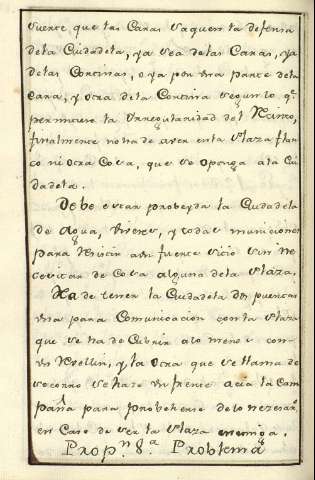 suerte que las Caras saquen la defensa
dela Ciudadela, ya sea delas Caras, ya
delas Cortinas, o ya por una parte dela
Cara, y otra dela Cortina segun lo q.e
permitiere la Yrregularidad del Recinto,
finalmente no ha de aver enla Plaza flan
co ni otra Cosa, que se oponga ala Ciu
dadela.
Debe estar probeyda la Ciudadela
de Agua, Viveres, y todas municiones
para Resistir aun fuerte sitio sin Ne
cesitar de Cosa alguna dela Plaza.
Ha de tener la Ciudadela dos puertas
una para Comunicacion con la Plaza
que se ha de Cubrir alo menos con
un Revellin, y la otra que se llama de
socorro se hace en frente acia la Cam
paña para probeherse delo nezesar.o
en Caso de ser la Plaza enemiga.
Prop.n 8.a Problema